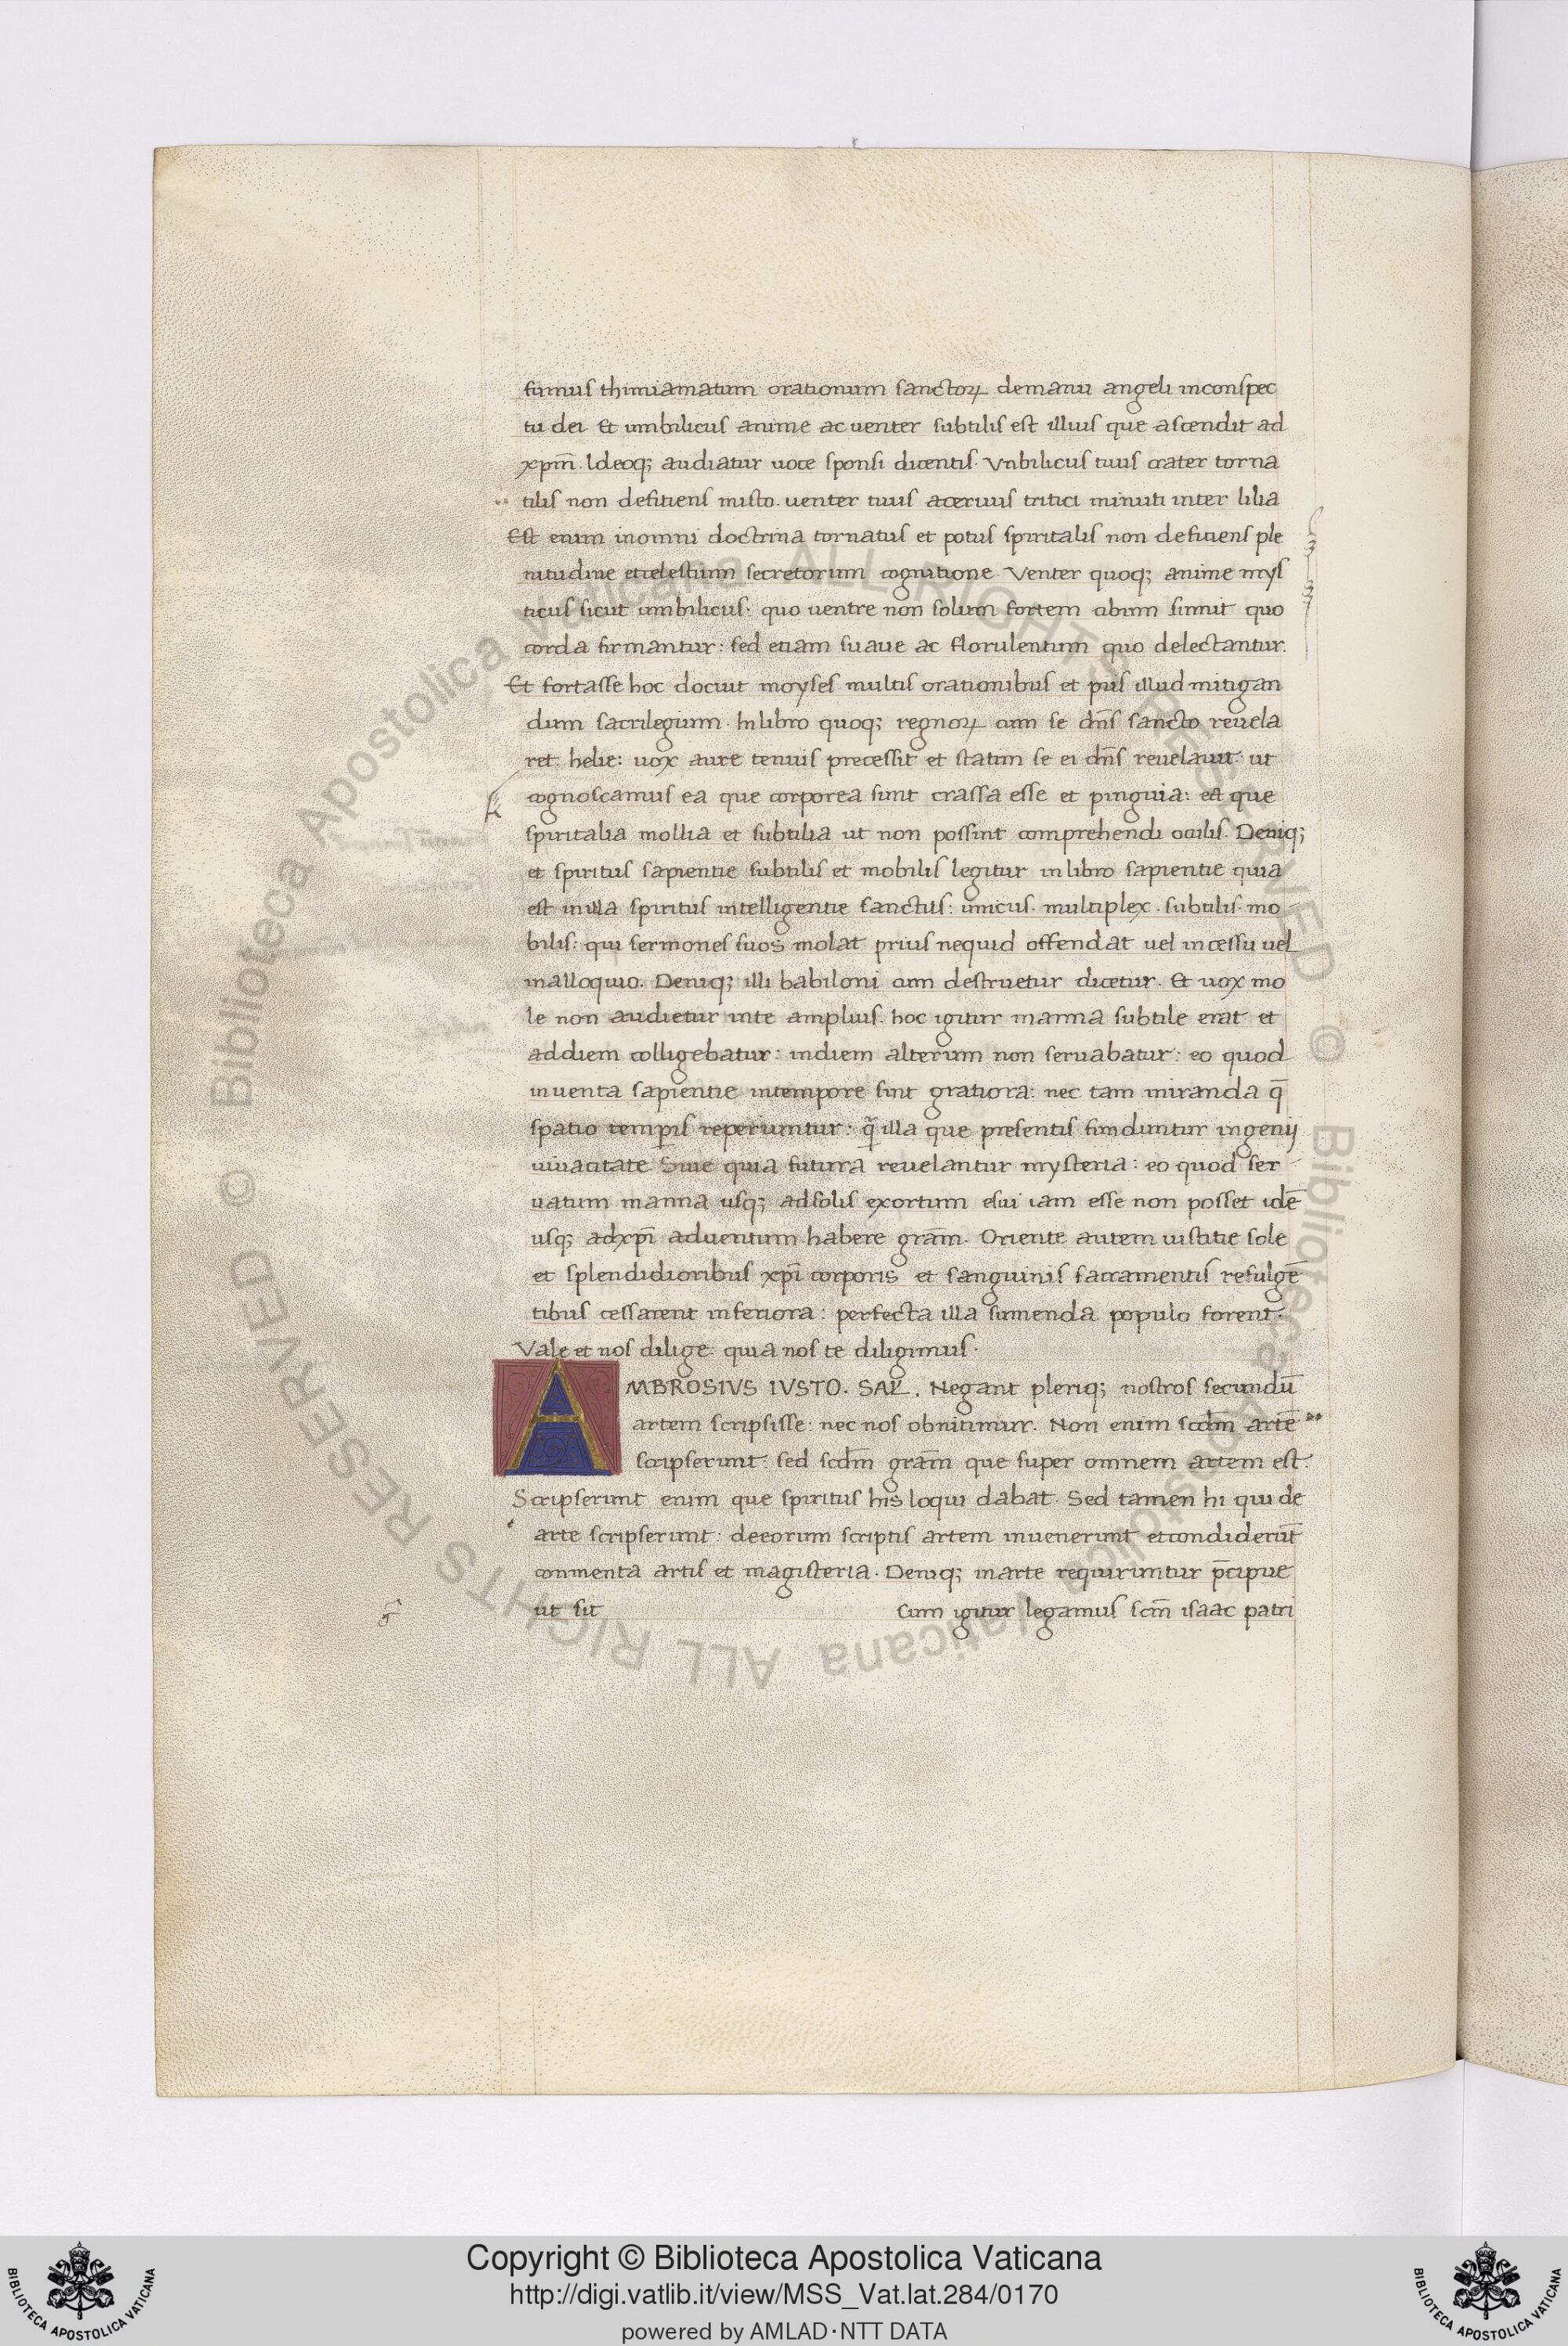 fumus thimiamatum orationum sanctoꝝ demanu angeli inconspec
tu dei. Et umbilicus anime ac uenter subtilis est illius que ascendit ad
xpm̄. Ideoq; audiatur uoce sponsi dicentis. Vnbilicus tuus crater torna
tilis non defitiens misto. uenter tuus aceruus tritici minuti inter lilia
Est enim inomni doctrina tornatus et potus spiritalis non defitiens ple
nitudine etcelestium secretorum cognitione. Venter quoq; anime mys
ticus sicut umbilicus: quo uentre non solum fortem cibum sumit quo
corda firmantur: sed etiam suaue ac florulentum quo delectantur.
Et fortasse hoc docuit moyses multis orationibus et piis illud mitigan
dum sacrilegium. Inlibro quoq; regnoꝝ cum se dn̄s sancto reuela
ret helie: uox aure tenuis precessit et statim se ei dn̄s reuelauit: ut
cognoscamus ea que corporea sunt crassa esse et pinguia: ea que
spiritalia mollia et subtilia ut non possint comprehendi oculis. Deniq;
et spiritus sapientie subtilis et mobilis legitur inlibro sapientie quia
est inilla spiritus intelligentie sanctus: unicus. multiplex. subtilis. mo
bilis: qui sermones suos molat prius nequid offendat uel incessu uel
inalloquio. Deniq; illi babiloni cum destruetur dicetur. Et uox mo
le non audietur inte amplius. hoc igitur manna subtile erat et
addiem colligebatur: indiem alterum non seruabatur: eo quod
inuenta sapientie intempore sint gratiora: nec tam miranda q̄
spatio temp̱is reperiuntur: q̄ illa que presentis funduntur ingenij
uiuacitate. Siue quia futura reuelantur mysteria: eo quod ser
uatum manna usq; adsolis exortum esui iam esse non posset idē
usq; adxpī aduentum habere grām. Oriente autem iustitie sole
et splendidioribus xpī corporis et sanguinis sacramentis refulgē
tibus cessarent inferiora: perfecta illa sumenda populo forent.
Vale et nos dilige: quia nos te diligimus.
AMBROSIVS IVSTO. SAL̄. Negant pleriq; nostros secundū
artem scripsisse: nec nos obnitimur. Non enim scdm̄ artē
scripserunt: sed scdm̄ grām que super omnem artem est.
Scripserunt enim que spiritus his loqui dabat. Sed tamen hi qui de
arte scripserunt: deeorum scriptis artem inuenerunt etcondiderūt
conmenta artis et magisteria. Deniq; inarte requiruntur p̄cipue
ut sit cum igitur legamus scm̄ isaac patri
Copyright © Biblioteca Apostolica Vaticana
http://digi.vatlib.it/view/MSS_Vat.lat.284/0170
powered by AMLAD·NTT DATA
BIBLIOTECA APOSTOLICA VATICANA
BIBLIOTECA APOSTOLICA VATICANA
© Biblioteca Apostolica Vaticana ALL RIGHTS RESERVED © Biblioteca Apostolica Vaticana ALL RIGHTS RESERVED